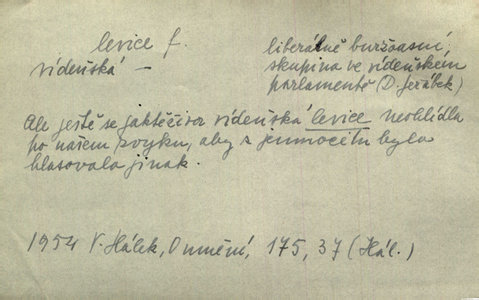 levice f.
vídeňská —
liberálně buržoasní
skupina ve vídeňském
parlamentě (D. Jeřábek)
Ale ještě se jaktěživa vídeňská levice neohlídla
po našem zvyku, aby z jemnocitu byla
hlasovala jinak.
1954 V. Hálek, O umění, 175, 37 (Hál.)